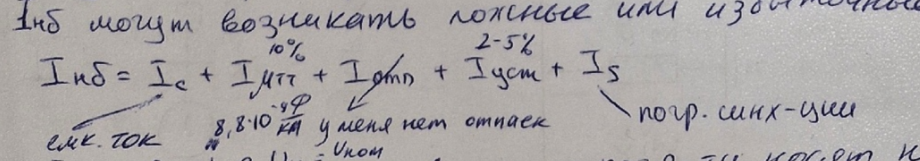 Iнб могут возникать ложные или избыточные
10% 2-5%
Iнб = Ic + Iутт + Iотп + Iуст + Is
емк. ток 8,8·10⁻⁹ Ф/км у меня нет отпаек погр. синх-ции
Uном